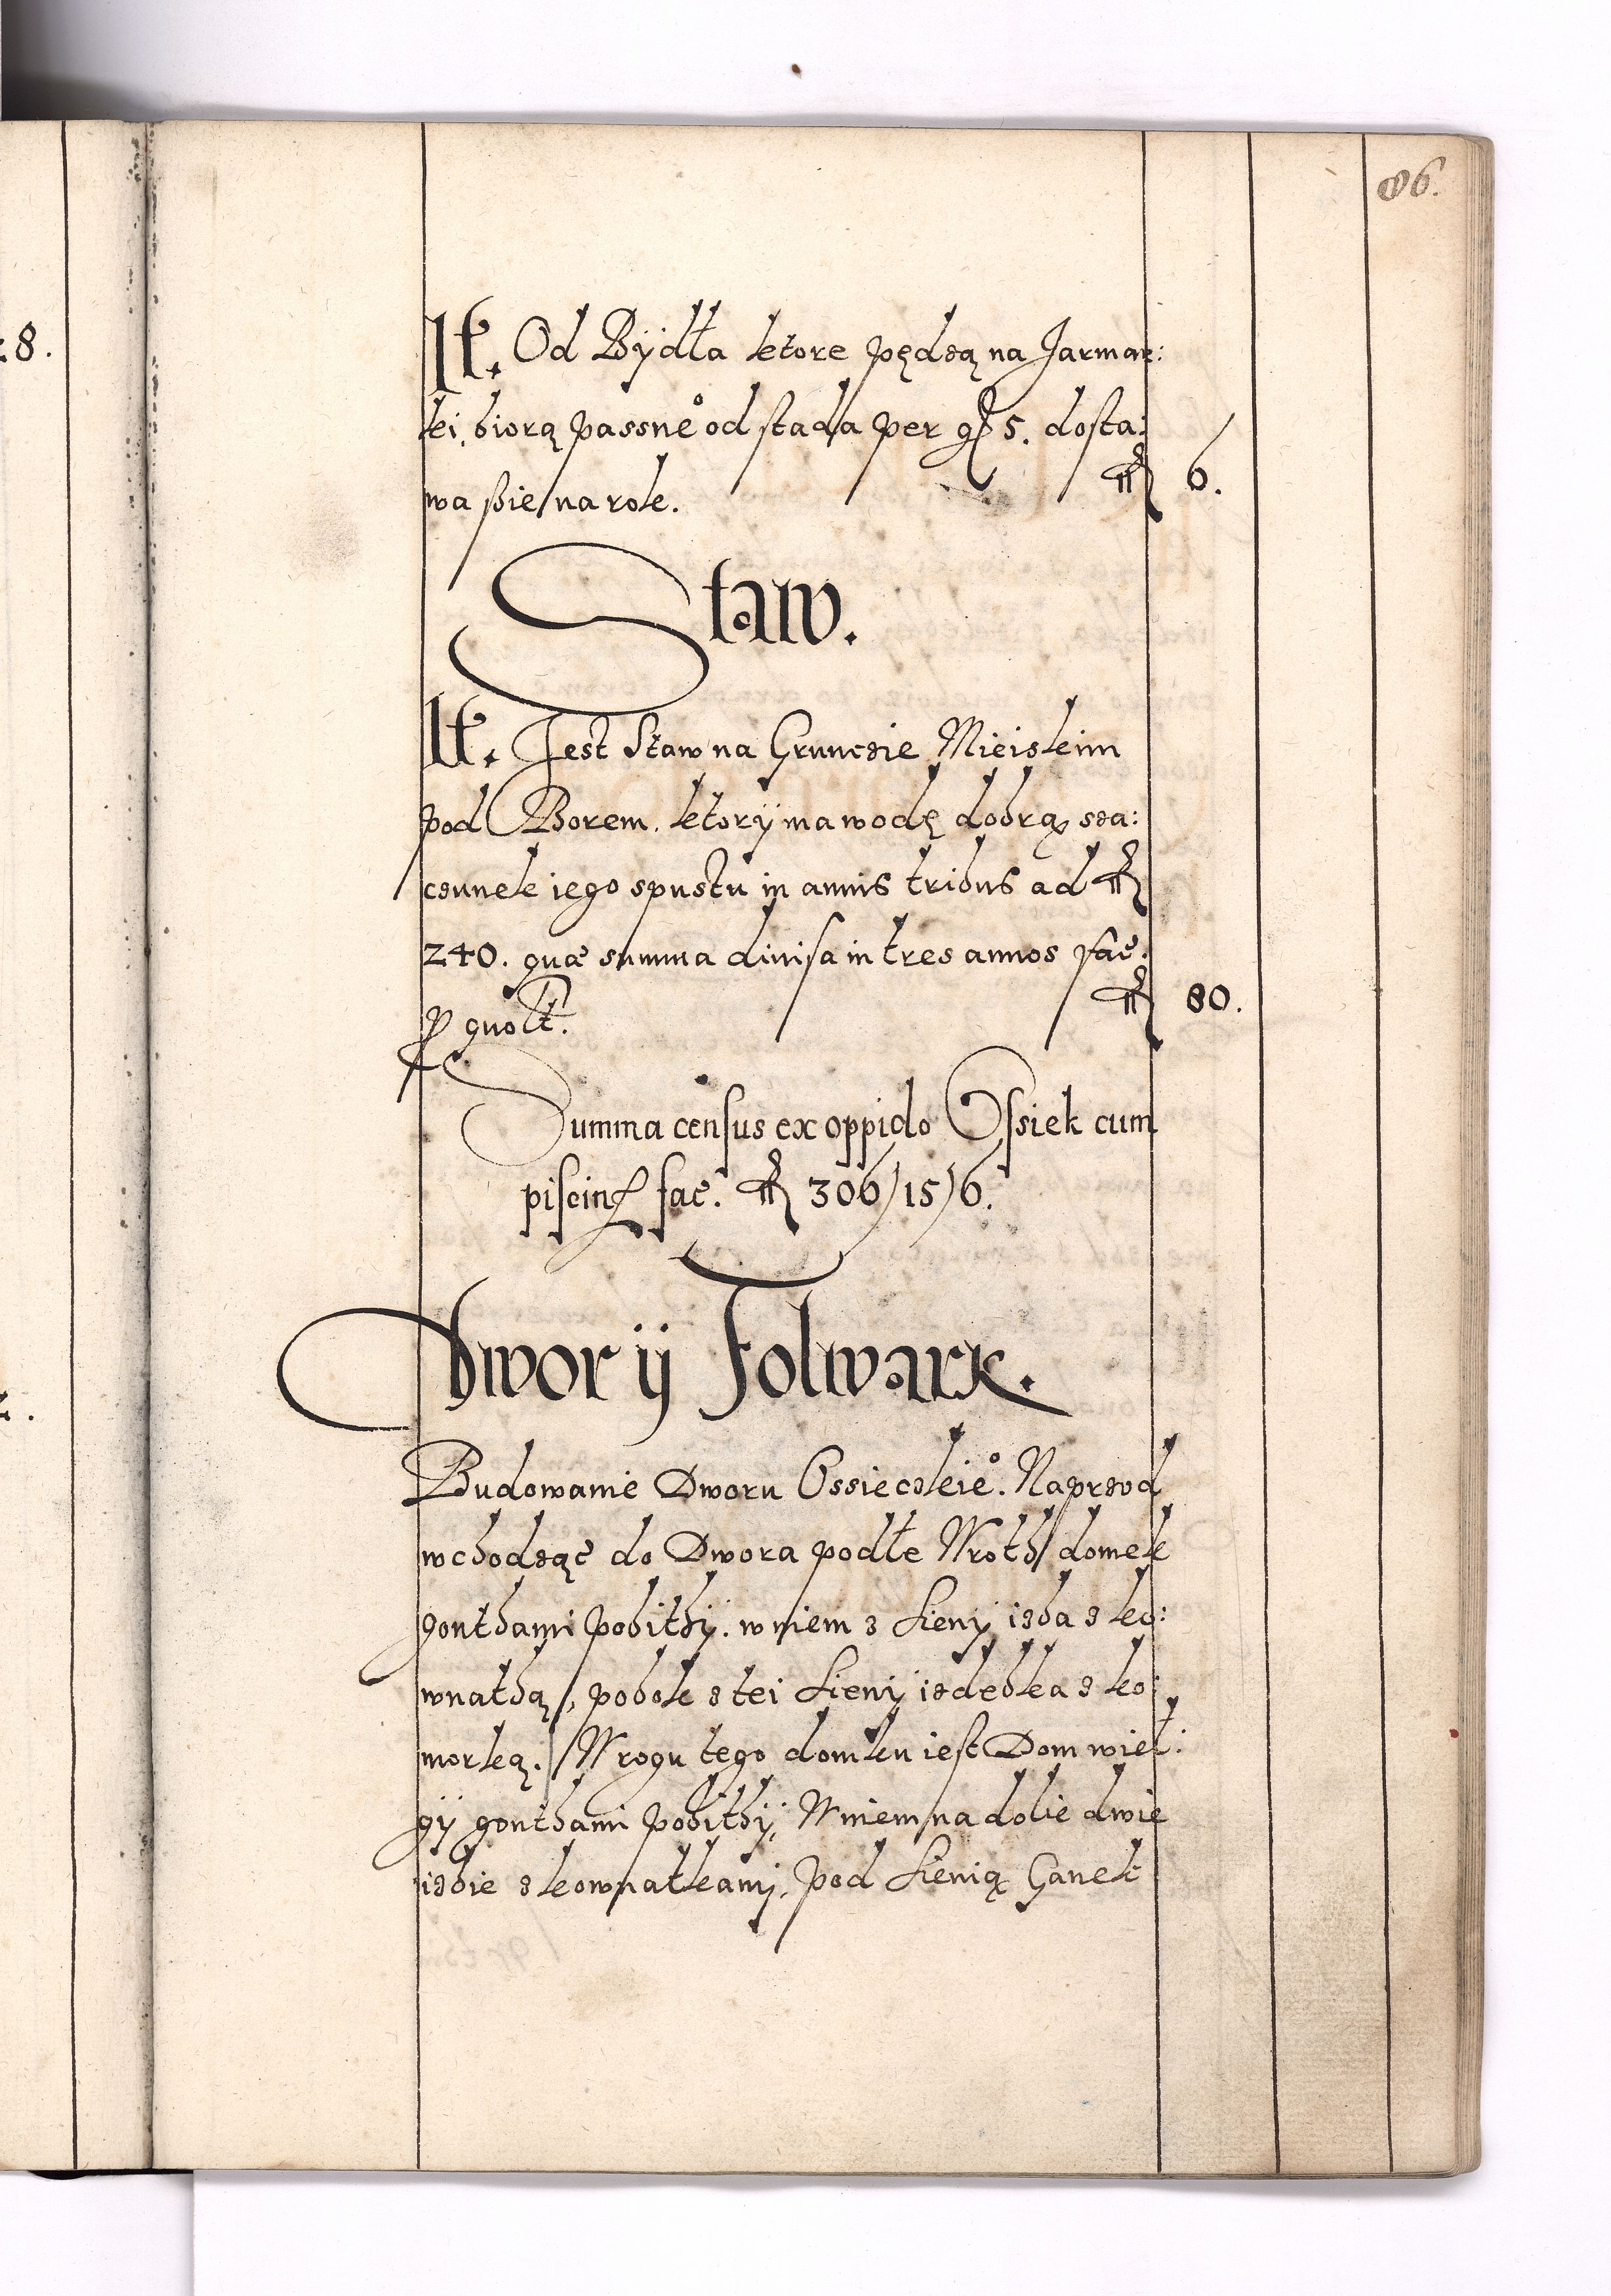 86.
8.
It. Od Bydła ktore pędzą na Jarmar:
ki, biorą passne° od stada per gr 5. dosta:
wa ßie na rok. fl 6.
Staw.
It. Jest Staw na Grunczie Mieiskim
pod Borem, ktory ma wodę dobrą, sza:
czunek iego spustu in annis tribus ad fl
240. quæ summa divisa in tres annos fac.
p quolt. fl 80.
Summa census ex oppido Ossiek cum
piscina fac. fl 306/15/6.
Dwor ÿ Folwark.
Budowanie Dworu Ossieczkie°. Naprzod
wchodząc do Dwora podłe Wroth/ domek
gonthami pobithy. w niem z Sieny izba z ko:
wnathą, pobok z tei Sieny izdebka z ko:
morką. W rogu tego domku iest Dom wiel:
gy gonthami pobithy, W niem na dolie dwie
izbie z kownatkamy, pod Sienią Ganek